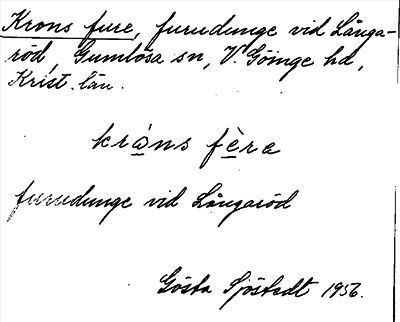 Krons fure, furudunge vid Långa-
röd, Gumlösa sn, V. Göinge hd,
Krist. län.
krån̊s fèra
furudunge vid Långaröd
Gösta Sjöstedt 1956.